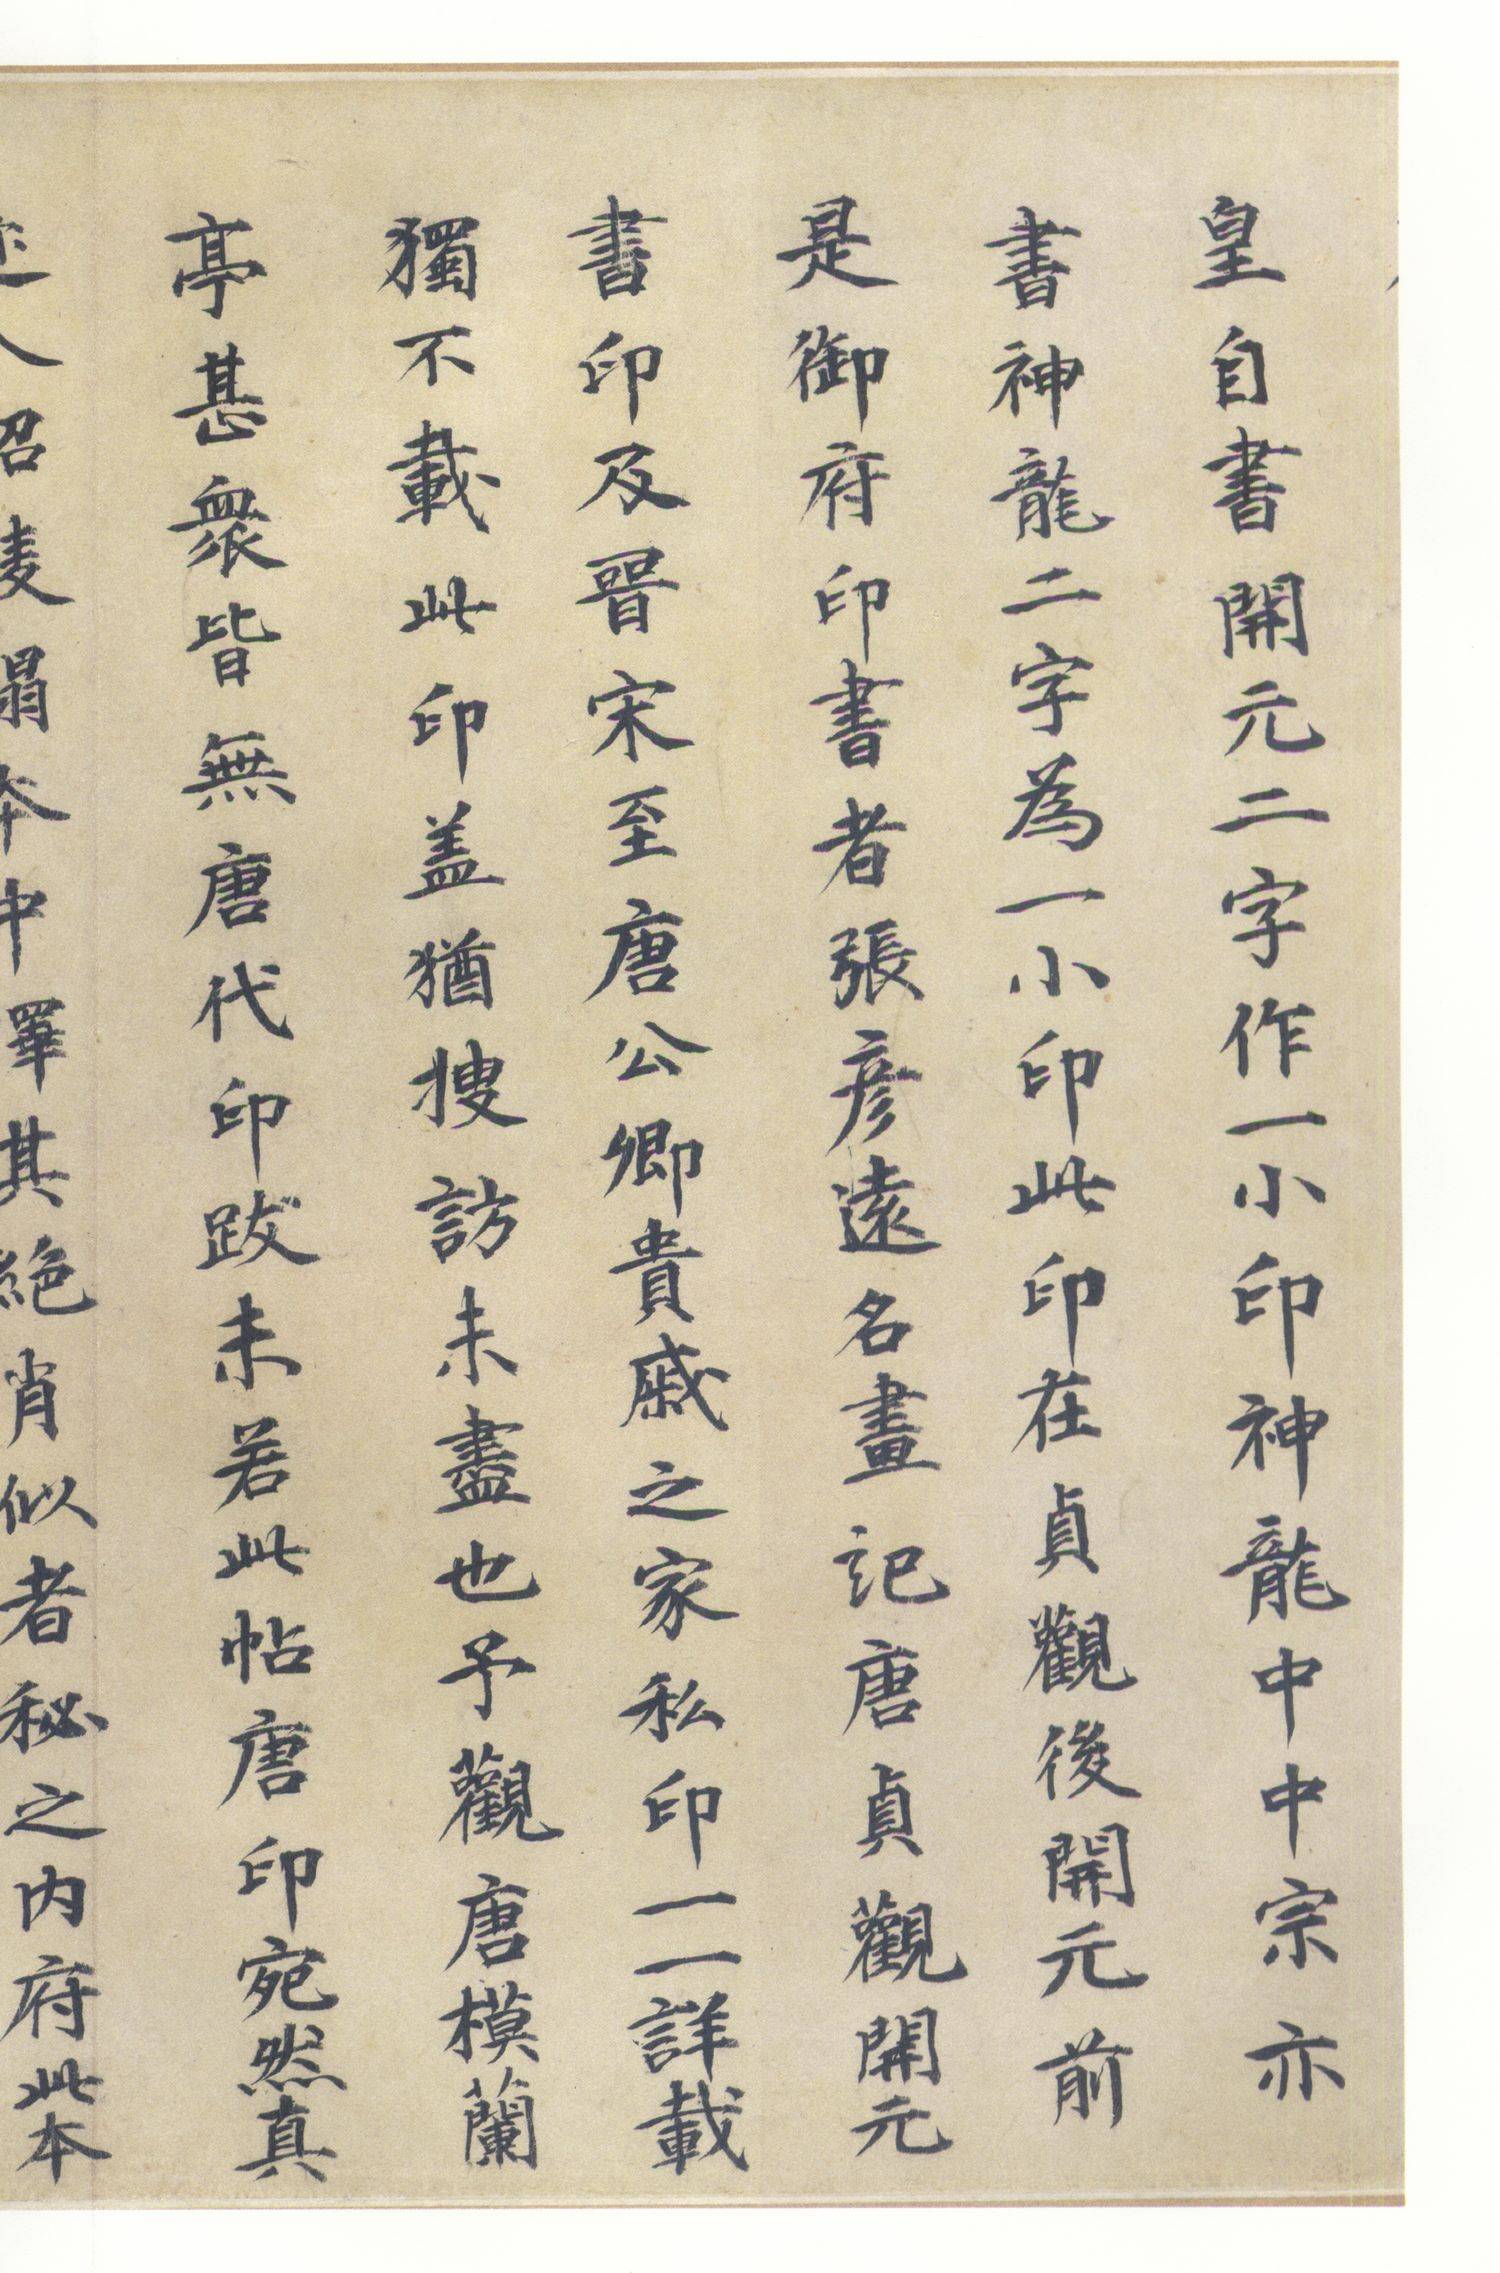 皇自書開元二字作一小印神龍中中宗亦
書神龍二字為一小印此印在貞觀後開元前
是御府印書者張彥遠名畫記唐貞觀開元
書印及晉宋至唐公卿貴戚之家私印一一詳載
獨不載此印盖猶搜訪未盡也予觀唐模蘭
亭甚衆皆無唐代印跋未若此帖唐印宛然真
人招陵搨本中擇其絶肖似者秘之内府此本